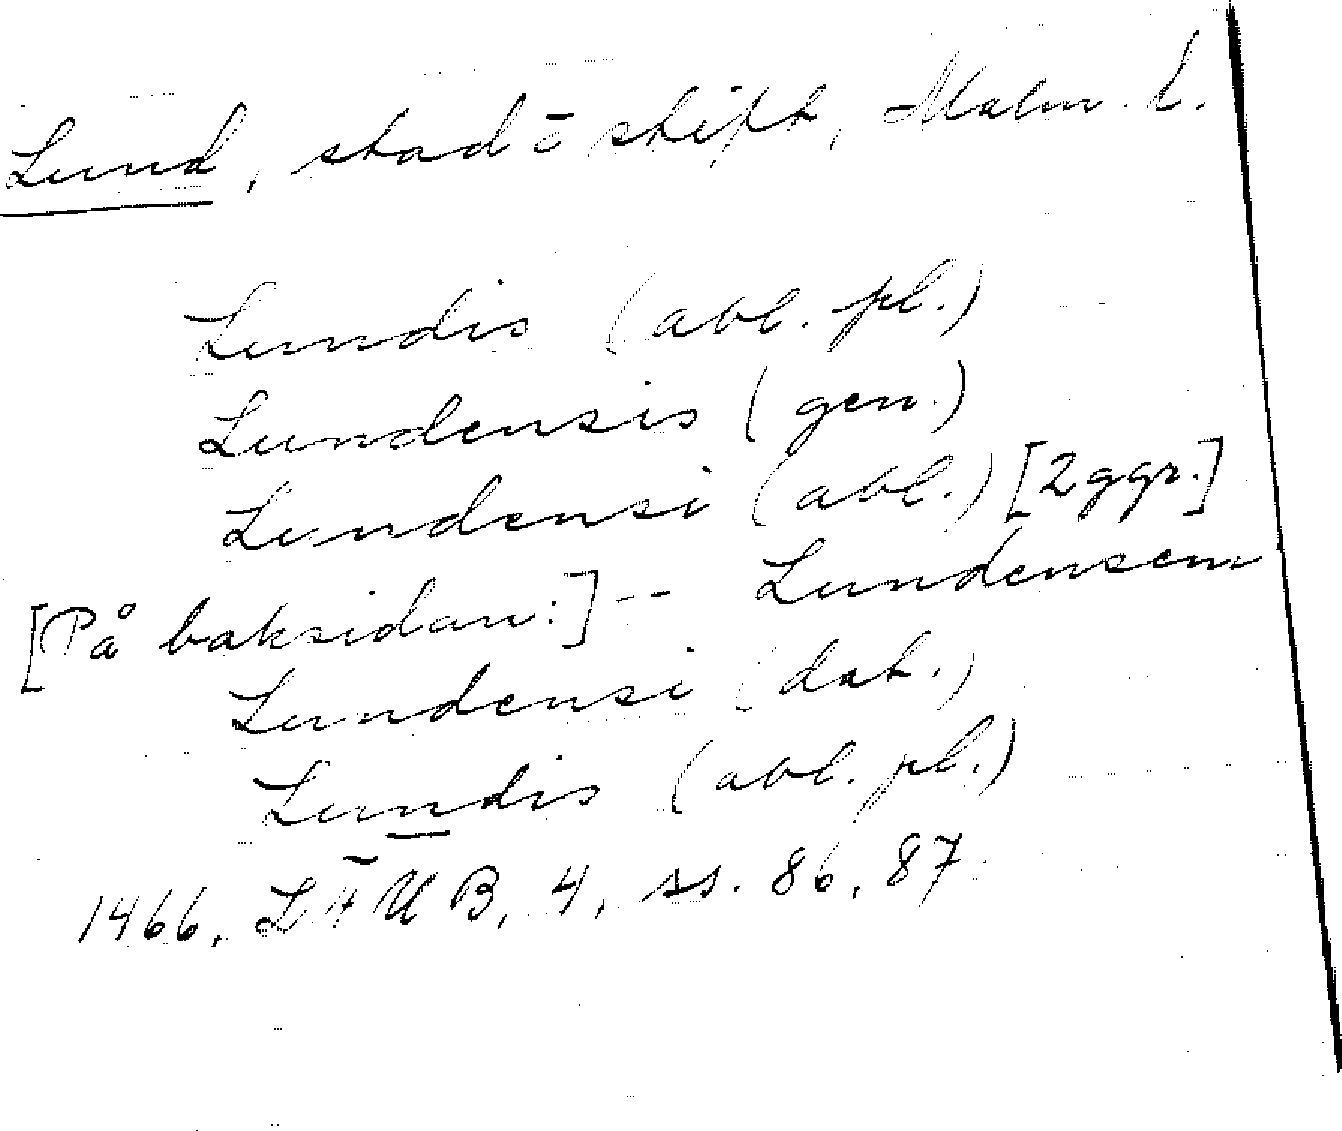 Lund, stad o stift, Malm. l.
Lundis (abl. pl.)
Lundensis (gen.)
Lundensi (abl.) [2 ggr.]
[På baksidan:] -- Lundensem
Lundensi (dat.)
Lundis (abl. pl.)
1466, LÄUB, 4, ss. 86, 87